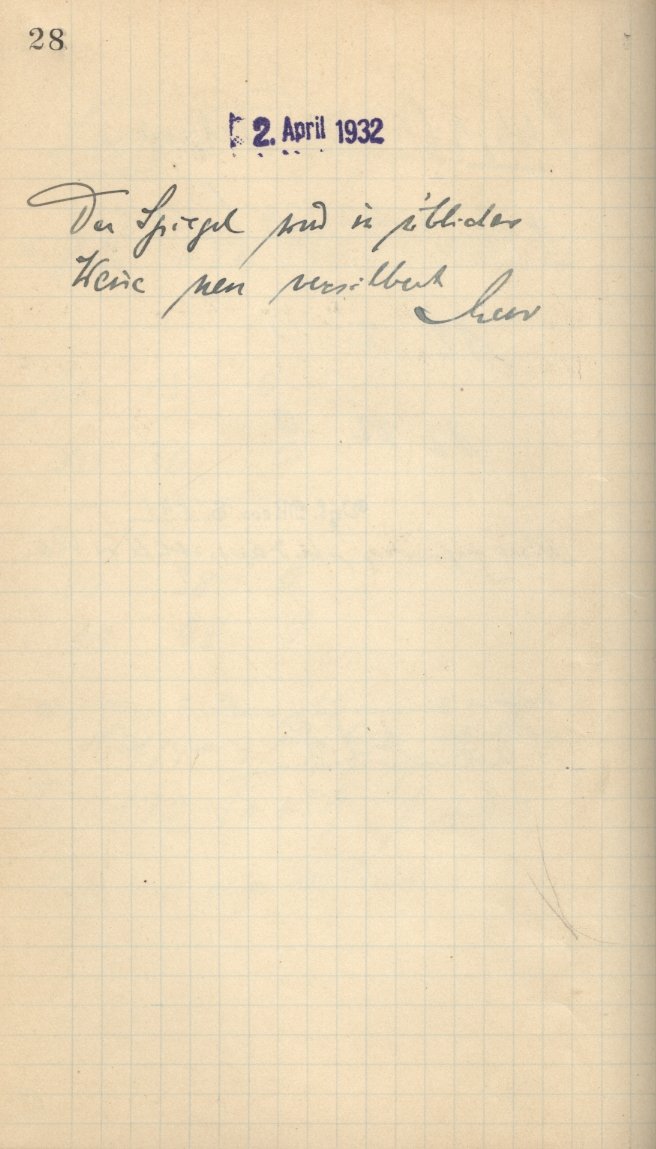 28
2. April 1932
Der Spiegel wird in üblicher
Weise neu versilbert